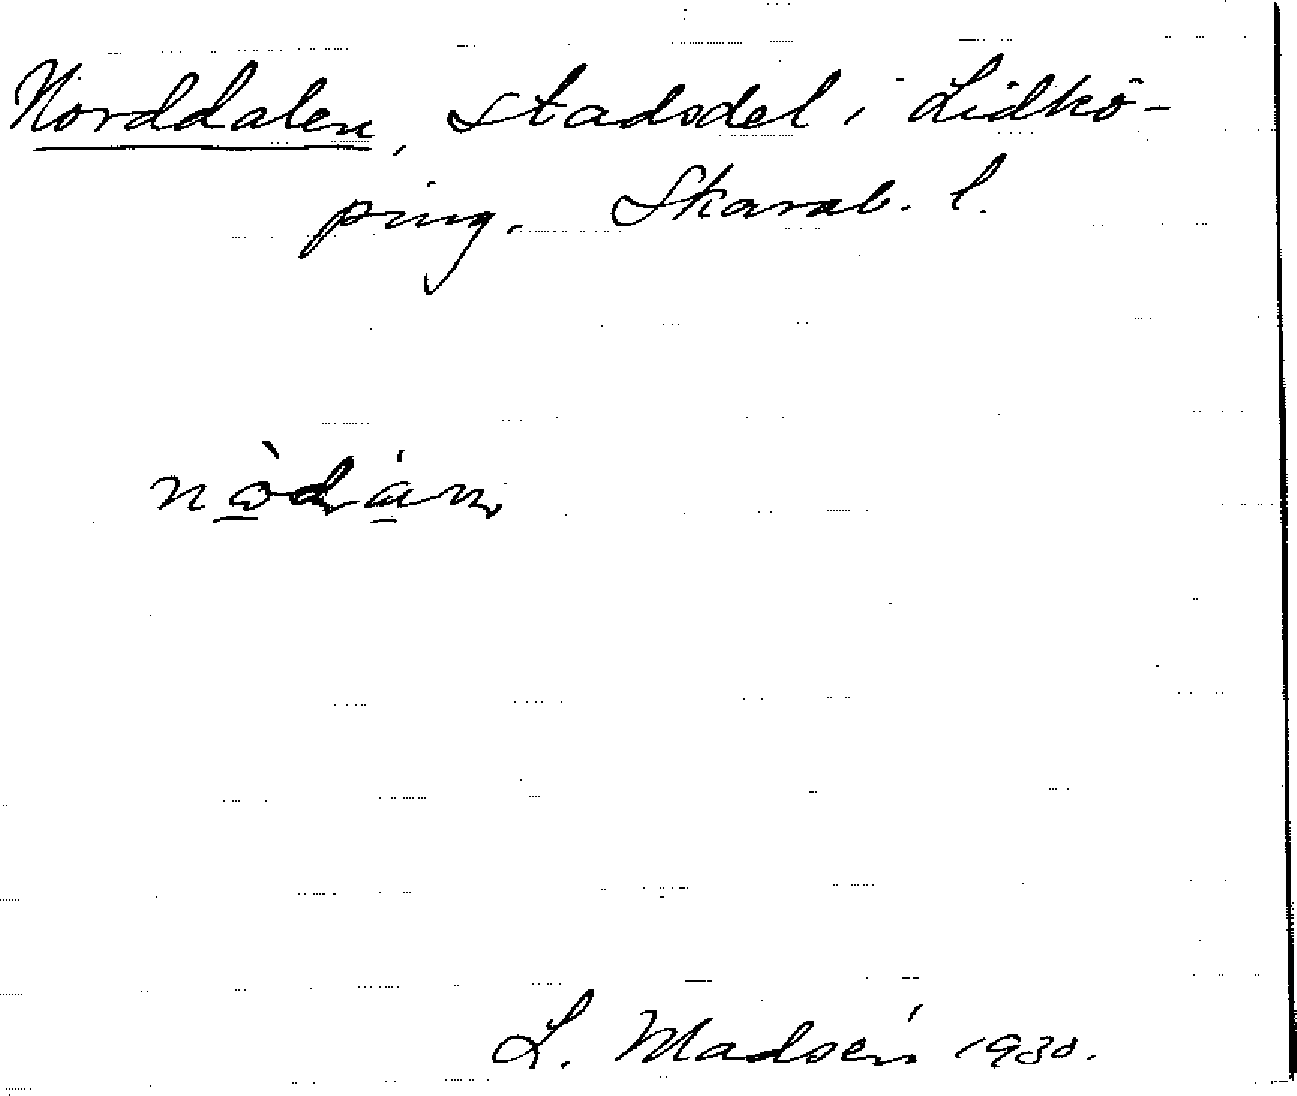 Norddalen, stadsdel i Lidkö-
ping. Skarab. l.
L. Madsén 1930.